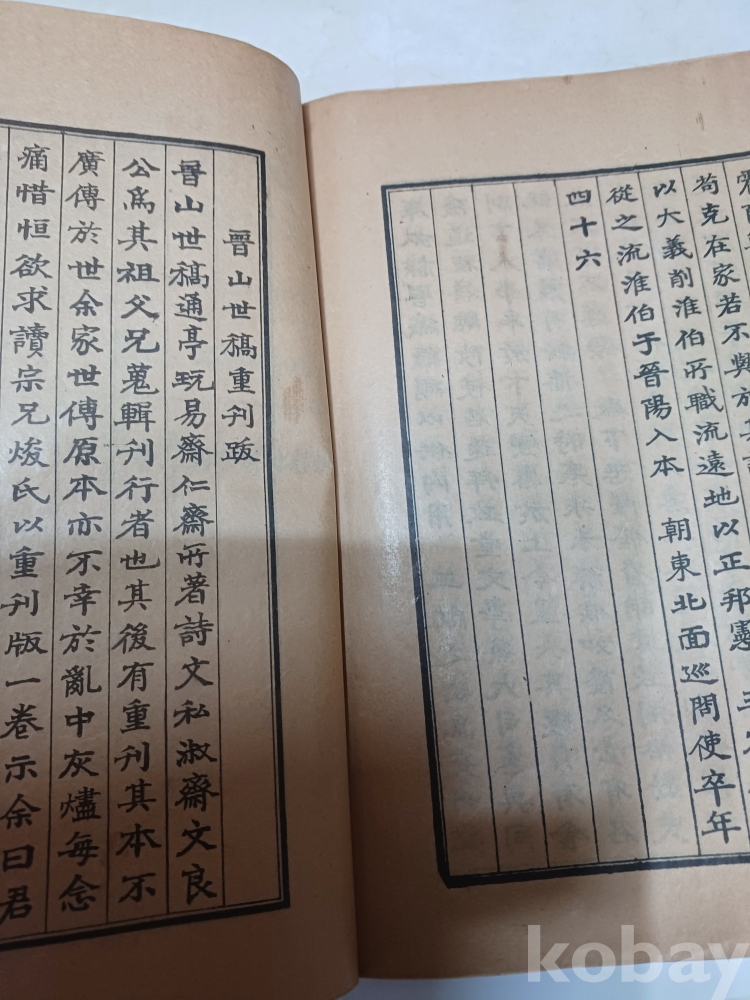 苟克在家若不與於
以大義削淮伯所職流遠地以正邦憲
從之流淮伯于晉陽入本 朝東北面巡問使卒年
四十六
晉山世稿重刊跋
晉山世稿通亭玩易齋仁齋所著詩文私淑齋文良
公爲其祖父兄蒐輯刊行者也其後有重刊其本不
廣傳於世余家世傳原本亦不幸於亂中灰燼每念
痛惜恒欲求讀宗兄焌氏以重刊版一卷示余曰君
kobay